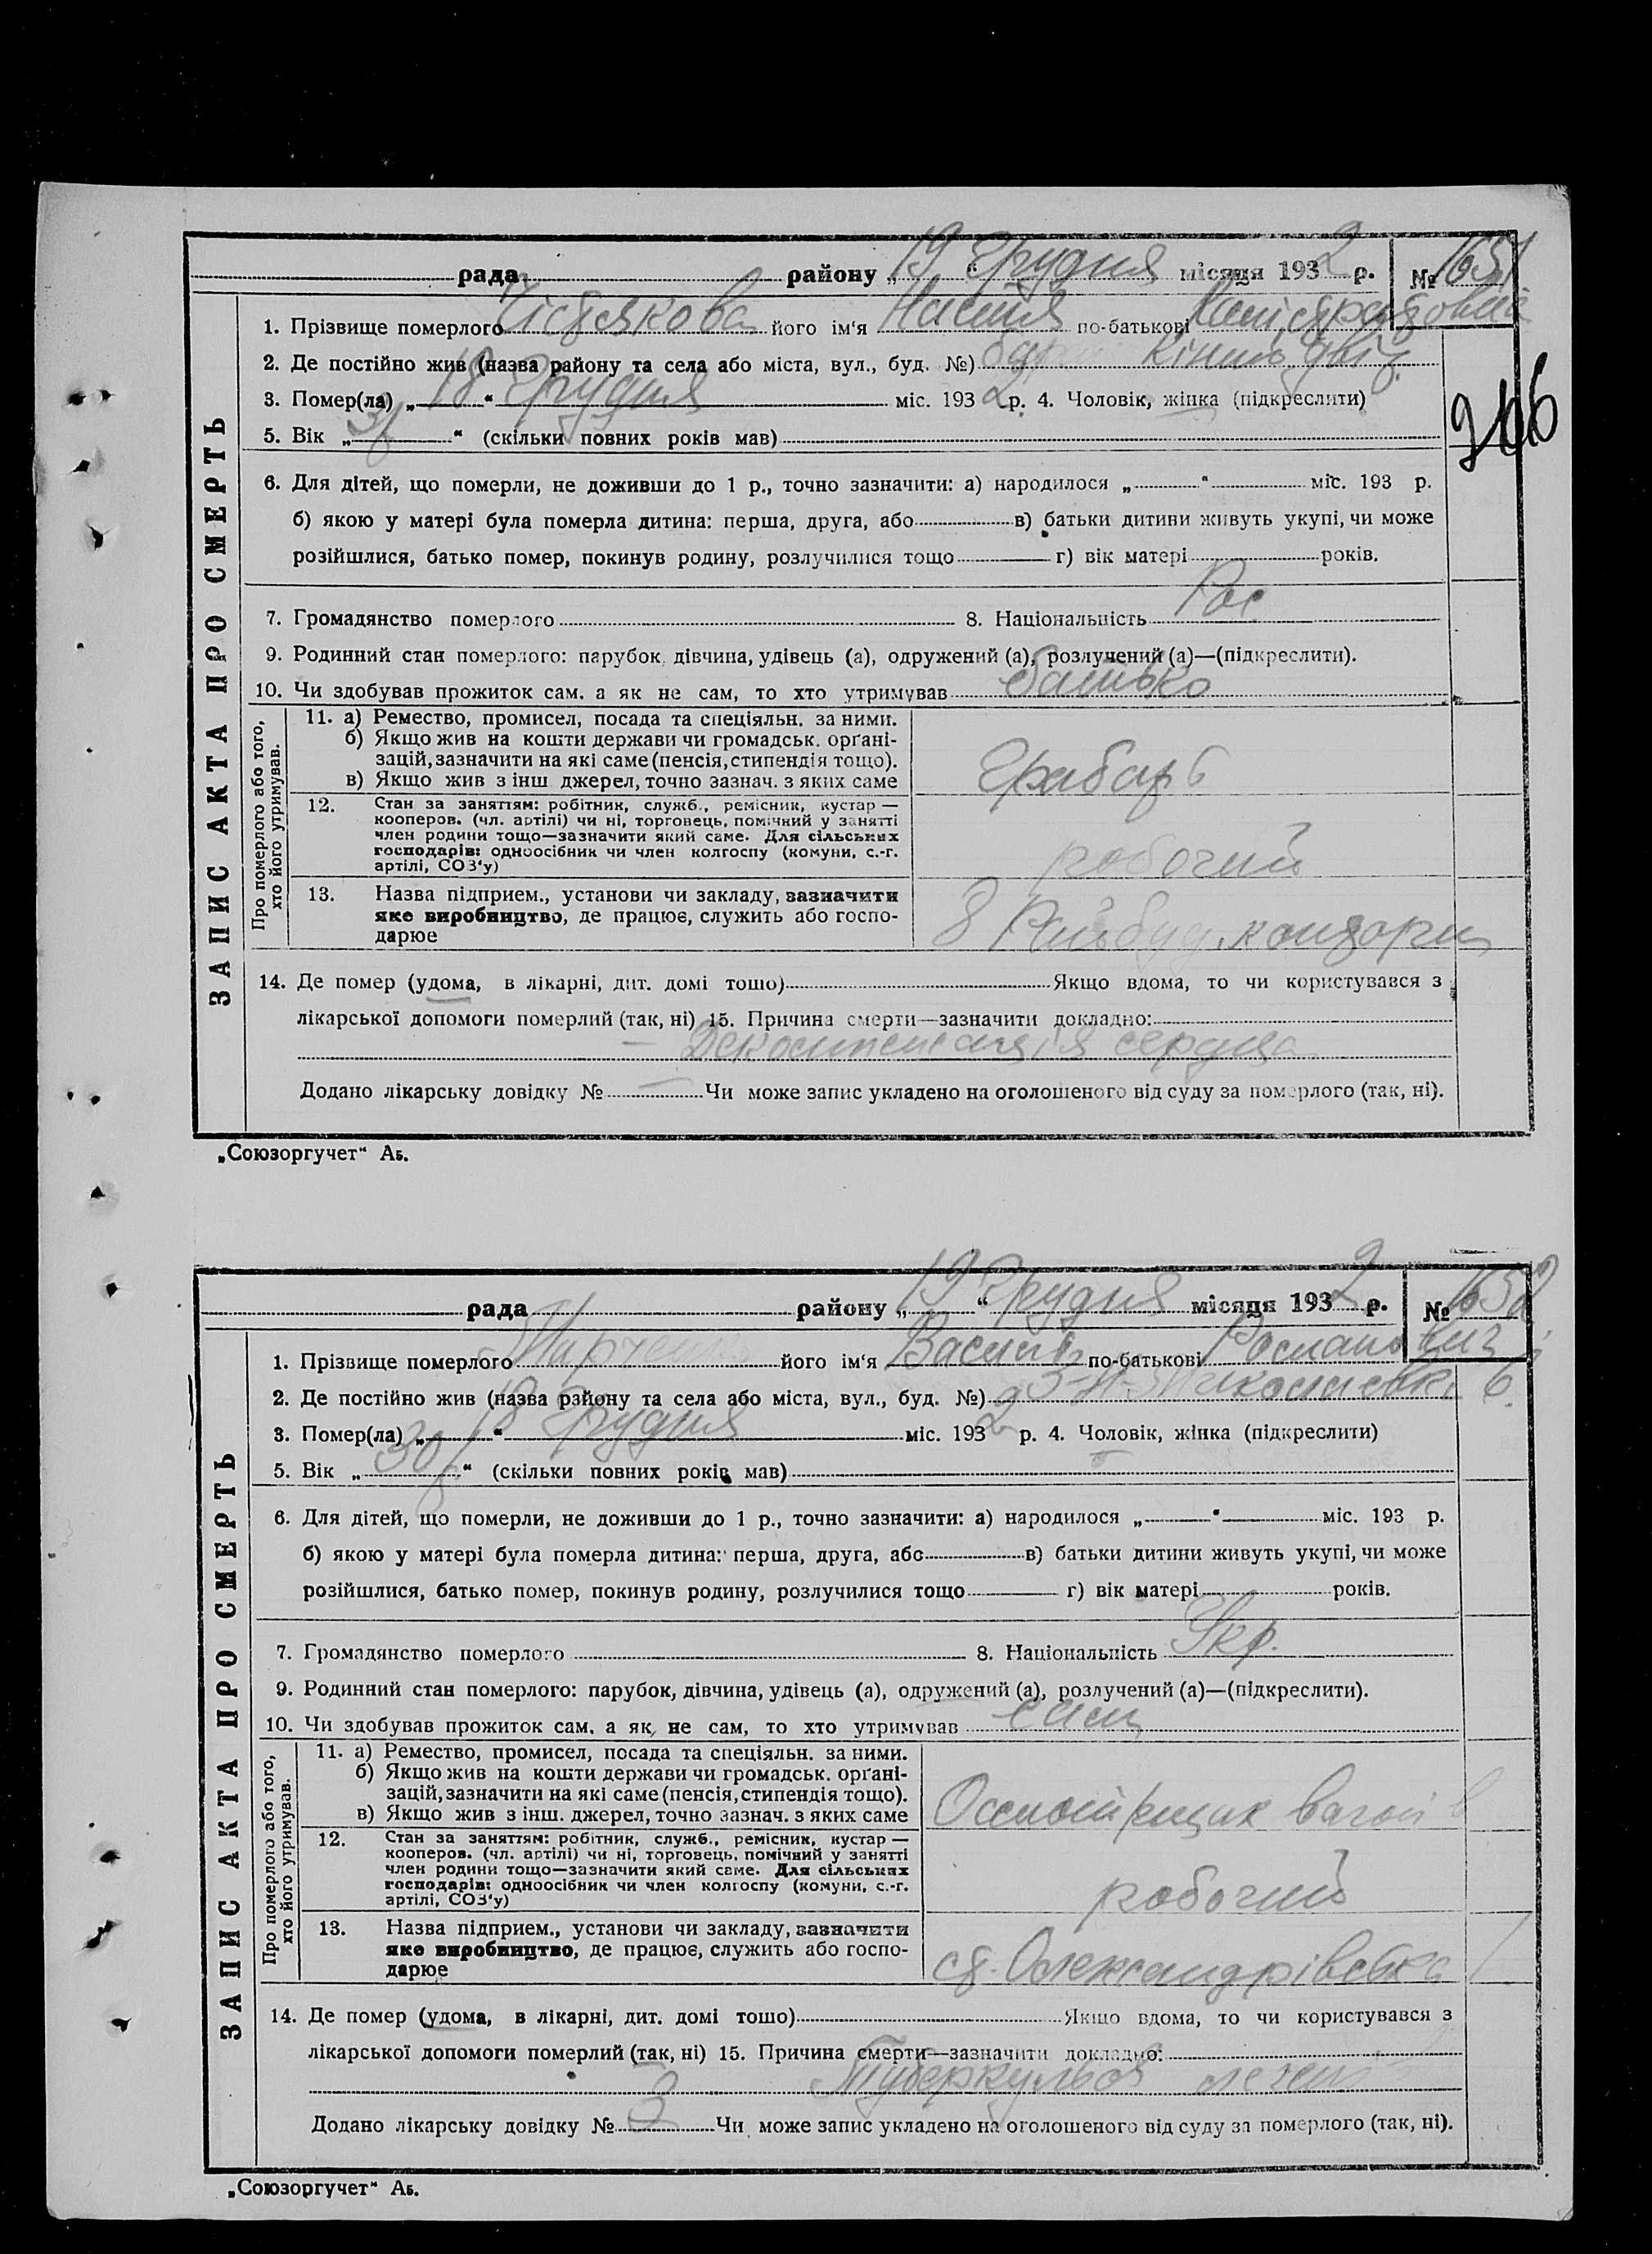 рада району „19“ Грудня місяця 1932 р. № 1651
1. Прізвище померлого Чістякова його ім‘я Настя по-батькові
2. Де постійно жив (назва району та села або міста, вул., буд. №)
3. Помер(ла) „18“ Грудня міс. 1932 р. 4. Чоловік, жінка (підкреслити)
5. Вік „ “ (скільки повних років мав)
6. Для дітей, що померли, не доживши до 1 р., точно зазначити: а) народилося „ “ міс. 193 р.
б) якою у матері була померла дитина: перша, друга, або в) батьки дитини живуть укупі, чи може
розійшлися, батько помер, покинув родину, розлучилися тощо г) вік матері років.
7. Громадянство померлого 8. Національність Рос
9. Родинний стан померлого: парубок, дівчина, удівець (а), одружений (а), розлучений (а)—(підкреслити).
10. Чи здобував прожиток сам. а як не сам, то хто утримував батько
ЗАПИС АКТА ПРО СМЕРТЬ
Про померлого або того,
хто його утримував.
11. а) Ремество, промисел, посада та спеціяльн. за ними.
б) Якщо жив на кошти держави чи громадськ. орґані-
зацій, зазначити на які саме (пенсія, стипендія тощо).
в) Якщо жив з інш джерел, точно зазнач. з яких саме
Грабарь
12. Стан за заняттям: робітник, служб., ремісник, кустар —
кооперов. (чл. артілі) чи ні, торговець, помічний у занятті
член родини тощо—зазначити який саме. Для сільських
господарів: одноосібник чи член колгоспу (комуни, с.-г.
артілі, СОЗ‘у)
робочий
13. Назва підприєм., установи чи закладу, зазначити
яке виробництво, де працює, служить або госпо-
дарює
14. Де помер (удома, в лікарні, дит. домі тощо) Якщо вдома, то чи користувався з
лікарської допомоги померлий (так, ні) 15. Причина смерти—зазначити докладно:
Декомпенсація сердца
Додано лікарську довідку № — Чи може запис укладено на оголошеного від суду за померлого (так, ні).
„Союзоргучет“ Аб.
рада району „19“ Грудня місяця 1932 р. № 1652
1. Прізвище померлого його ім‘я Василь по-батькові Романович
2. Де постійно жив (назва району та села або міста, вул., буд. №)
3. Помер(ла) „18“ Грудня міс. 1932 р. 4. Чоловік, жінка (підкреслити)
5. Вік „30“ (скільки повних років мав)
6. Для дітей, що померли, не доживши до 1 р., точно зазначити: а) народилося „ “ міс. 193 р.
б) якою у матері була померла дитина: перша, друга, або в) батьки дитини живуть укупі, чи може
розійшлися, батько помер, покинув родину, розлучилися тощо г) вік матері років.
7. Громадянство померлого 8. Національність Укр.
9. Родинний стан померлого: парубок, дівчина, удівець (а), одружений (а), розлучений (а)—(підкреслити).
10. Чи здобував прожиток сам. а як не сам, то хто утримував сам
ЗАПИС АКТА ПРО СМЕРТЬ
Про померлого або того,
хто його утримував.
11. а) Ремество, промисел, посада та спеціяльн. за ними.
б) Якщо жив на кошти держави чи громадськ. орґані-
зацій, зазначити на які саме (пенсія, стипендія тощо).
в) Якщо жив з інш. джерел, точно зазнач. з яких саме
Осмотрщик вагонів
12. Стан за заняттям: робітник, служб., ремісник, кустар —
кооперов. (чл. артілі) чи ні, торговець, помічний у занятті
член родини тощо—зазначити який саме. Для сільських
господарів: одноосібник чи член колгоспу (комуни, с.-г.
артілі, СОЗ‘у)
робочий
13. Назва підприєм., установи чи закладу, зазначити
яке виробництво, де працює, служить або госпо-
дарює
ст. Олександрівська
14. Де помер (удома, в лікарні, дит. домі тощо) Якщо вдома, то чи користувався з
лікарської допомоги померлий (так, ні) 15. Причина смерти—зазначити докладно:
Туберкульоз легень
Додано лікарську довідку № 3 Чи може запис укладено на оголошеного від суду за померлого (так, ні).
„Союзоргучет“ Аб.